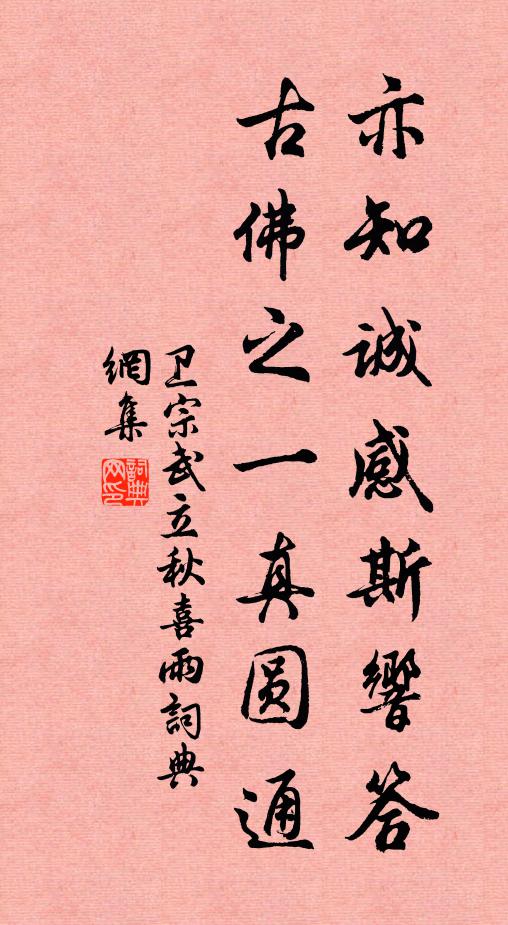 亦知诚感斯響答
古佛之一真圆通
卫宗武立秋喜雨詞典
網集
詞典
网印